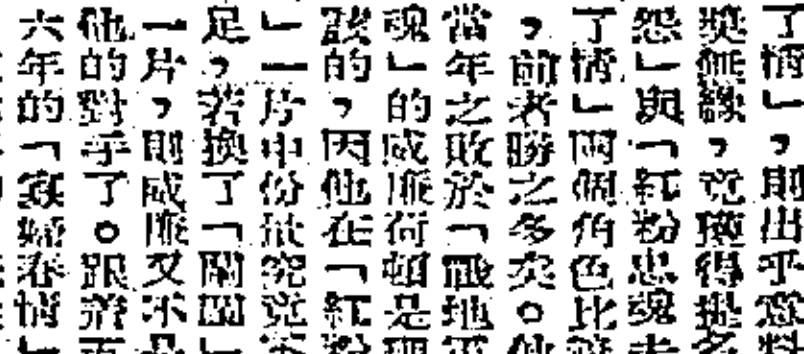 了情」,則出乎意料
獎無緣,竟獲得提名
怨」與「紅粉忠魂未
了情」兩個角色比較
,前者勝之多矣。他
當年之敗於「戰地軍
魂」的威廉荷頓是理
該的,因他在「紅粉
」一片中份究竟不
足,若換了「」
一片,則威廉又不是
他的對手了。跟著而
六年的「婦春情」